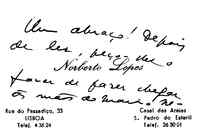 Um abraço! Depois
de ler, peço-lhe o
Norberto Lopes
favor de fazer chegar
às mãos do
Rua do Passadiço, 23
LISBOA
Telef. 4 36 24
Casal das Areias
S. Pedro do Estoril
Telef. 26 30 01